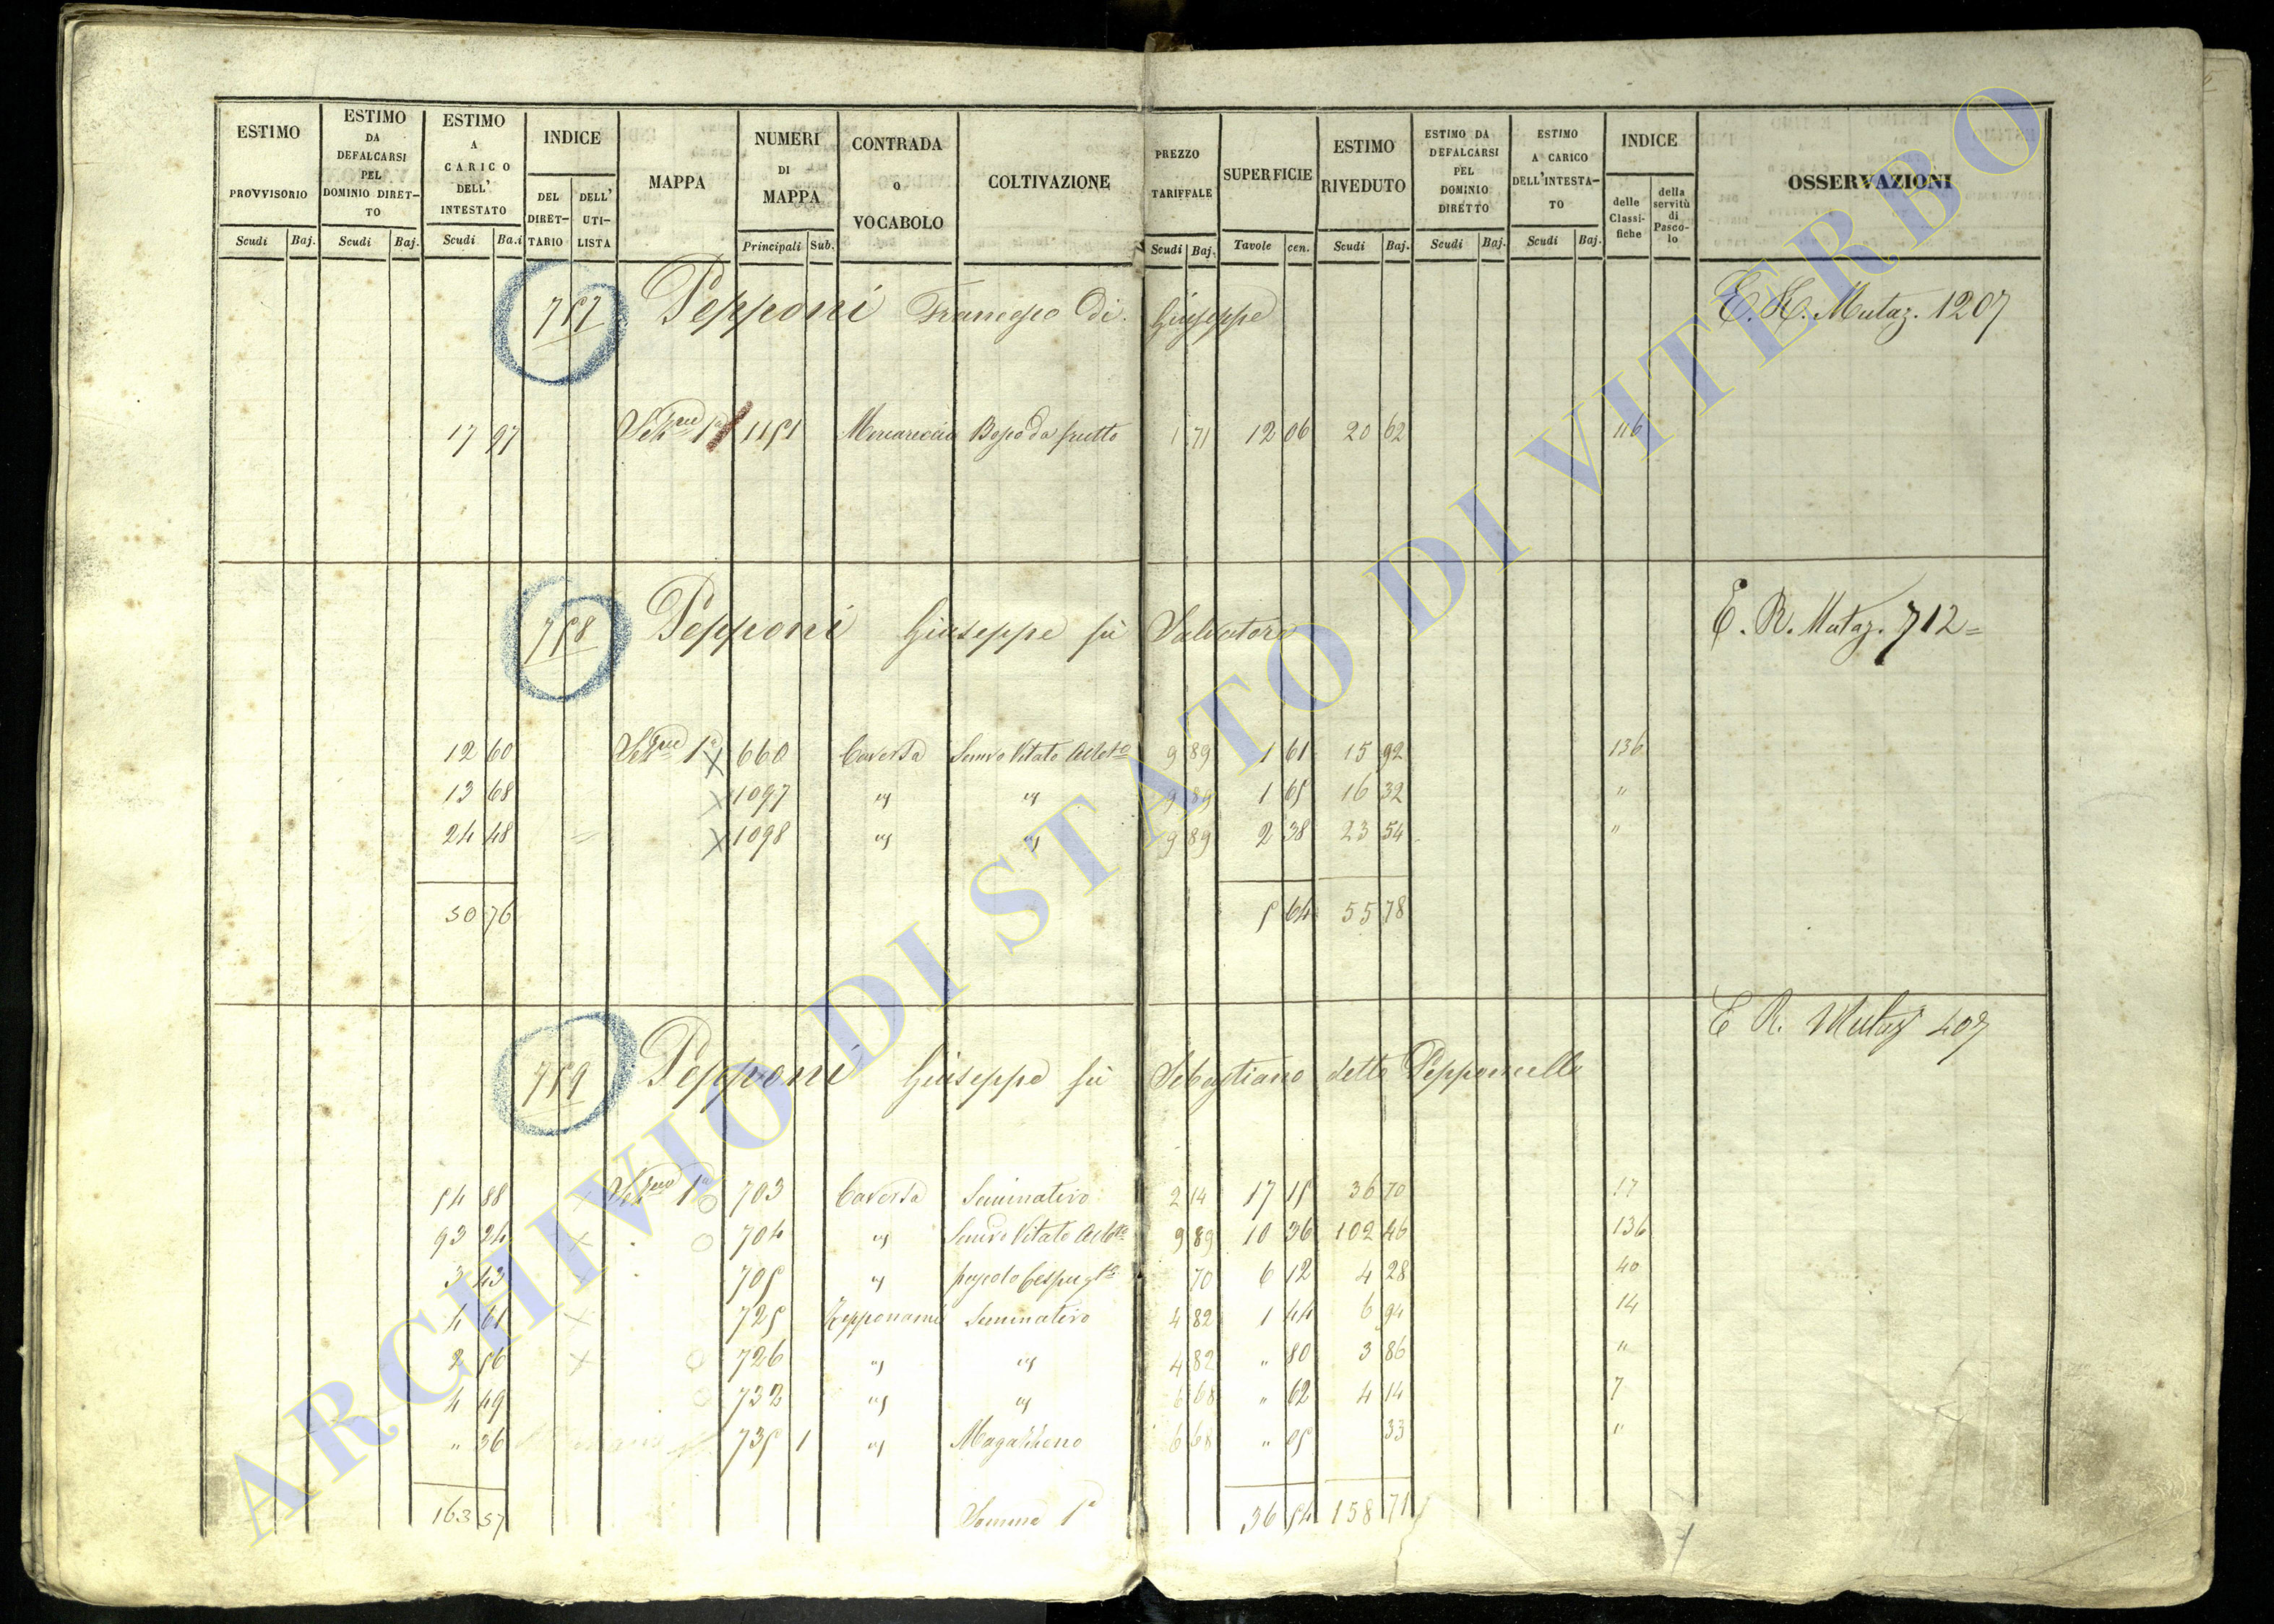 ESTIMO PROVVISORIO | ESTIMO DA DEFALCARSI PEL DOMINIO DIRETTO | ESTIMO A CARICO DELL' INTESTATO | INDICE | MAPPA | NUMERI DI MAPPA | CONTRADA O VOCABOLO | COLTIVAZIONE | PREZZO TARIFFALE | SUPERFICIE | ESTIMO RIVEDUTO | ESTIMO DA DEFALCARSI PEL DOMINIO DIRETTO | ESTIMO A CARICO DELL'INTESTATO | INDICE | OSSERVAZIONI
Scudi | Baj. | Scudi | Baj. | Scudi | Ba.i | DEL DIRETTARIO | DELL' UTILISTA | Principali | Sub. | Scudi | Baj. | Tavole | cen. | Scudi | Baj. | Scudi | Baj. | Scudi | Baj. | delle Classifiche | della servitù di Pascolo
757 Pepponi Francesco di Giuseppe E. R. Mutaz. 1207
17 97 Sezne 1a 1151 Bosco da frutto 1 71 12 06 20 62 116
758 Pepponi Giuseppe fù Salvatore E. R. Mutaz. 712=
12 60 Sezne 1a X 660 Caversa Semvo Vitato Albto 9 89 1 61 15 92 136
13 68 X 1097 " " 9 89 1 65 16 32 "
24 48 X 1098 " " 9 89 2 38 23 54 "
50 76 5 64 55 78
759 Pepponi Giuseppe fù Sebastiano detto Pepponcello E R. Mutaz 407
54 88 X Sezne 1a 703 Caversa Seminativo 2 14 17 15 36 70 17
93 24 X 704 " Semvo Vitato Albto 9 89 10 36 102 46 136
3 43 X 705 " pascolo Cespugto 70 6 12 4 28 40
4 61 X 725 Zepponami Seminativo 4 82 1 44 6 94 14
2 56 X 726 " " 4 82 " 80 3 86 "
4 49 732 " " 6 68 " 62 4 14 7
" 36 735 1 " Magazzeno 6 68 " 05 33 "
163 57 Somma 1a 36 54 158 71
ARCHIVIO DI STATO DI VITERBO